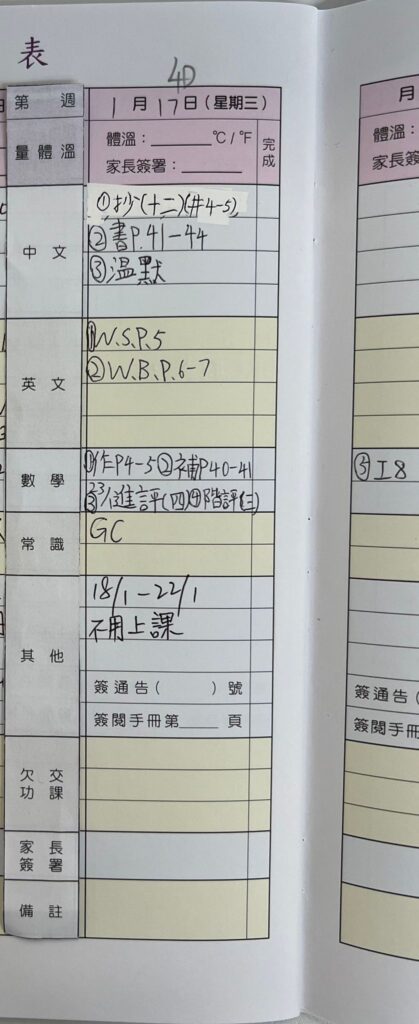 表
4D
第 週
1月17日(星期三)
月
量體溫
體溫：______℃/℉
家長簽署：______
完成
體溫：
家長簽
中文
①抄(十二)(#4-5)
②書P.41-44
③溫默
英文
①W.S.P.5
②W.B.P.6-7
數學
①作P4-5②補P40-41
進評(四)④階評(三)
⑤I8
常識
GC
其他
18/1-22/1
不用上課
簽通告( )號
簽閱手冊第____頁
簽通告(
簽閱手冊
欠交功課
家長簽署
備註